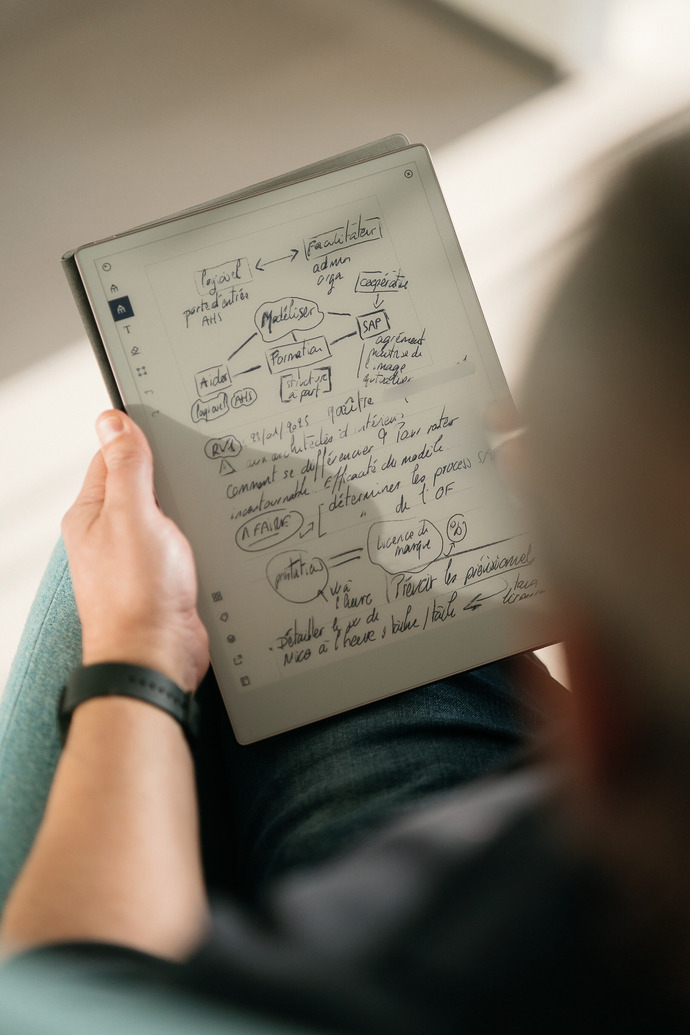 logiciel
Facilitateur
porte d'entrée
AHS
admin
orga
coopérative
Modéliser
SAP
Formation
agrément
maîtrise de
l'image
Aides
structure
à part
logiciel AHS
RV1 : 21/01/2025
aux architectes d'intérieur,
comment se différencier ? Pour rester
incontournable. Efficacité du modèle
A FAIRE
déterminer les process
" de l'OF
Licence de
marque
prestation
Vs à
l'heure
Prévoir les prévisionnel
Détailler le jeu de
Nico à l'heure s tâche / tâche